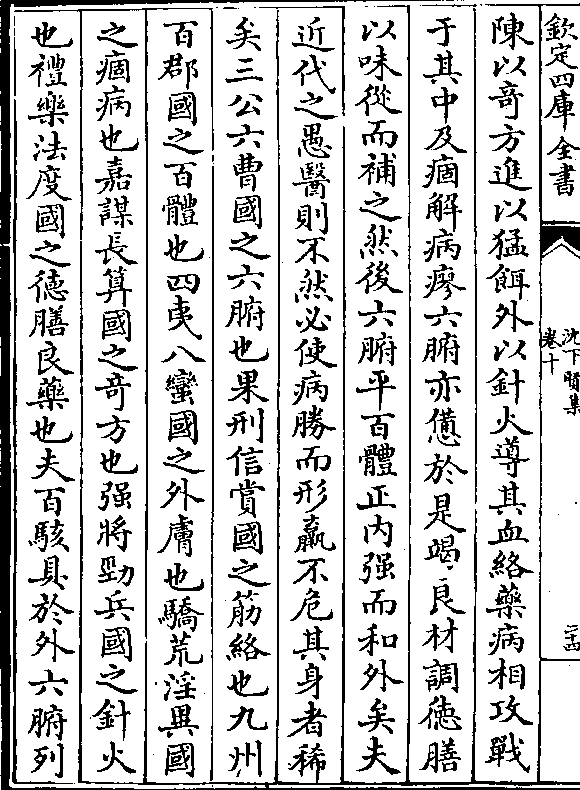 欽定四庫全書
沈下賢集
卷十
二十四
陳以竒方進以猛餌外以針火導其血絡藥病相攻戰
于其中及痼解病瘳六腑亦憊於是竭良材調徳膳
以味從而補之然後六腑平百體正内强而和外矣夫
近代之愚醫則不然必使病勝而形羸不危其身者稀
矣三公六曹國之六腑也果刑信賞國之筋絡也九州
百郡國之百體也四夷八蠻國之外膚也驕荒淫異國
之痼病也嘉謀長算國之竒方也强將勁兵國之針火
也禮樂法度國之徳膳良藥也夫百骸具於外六腑列